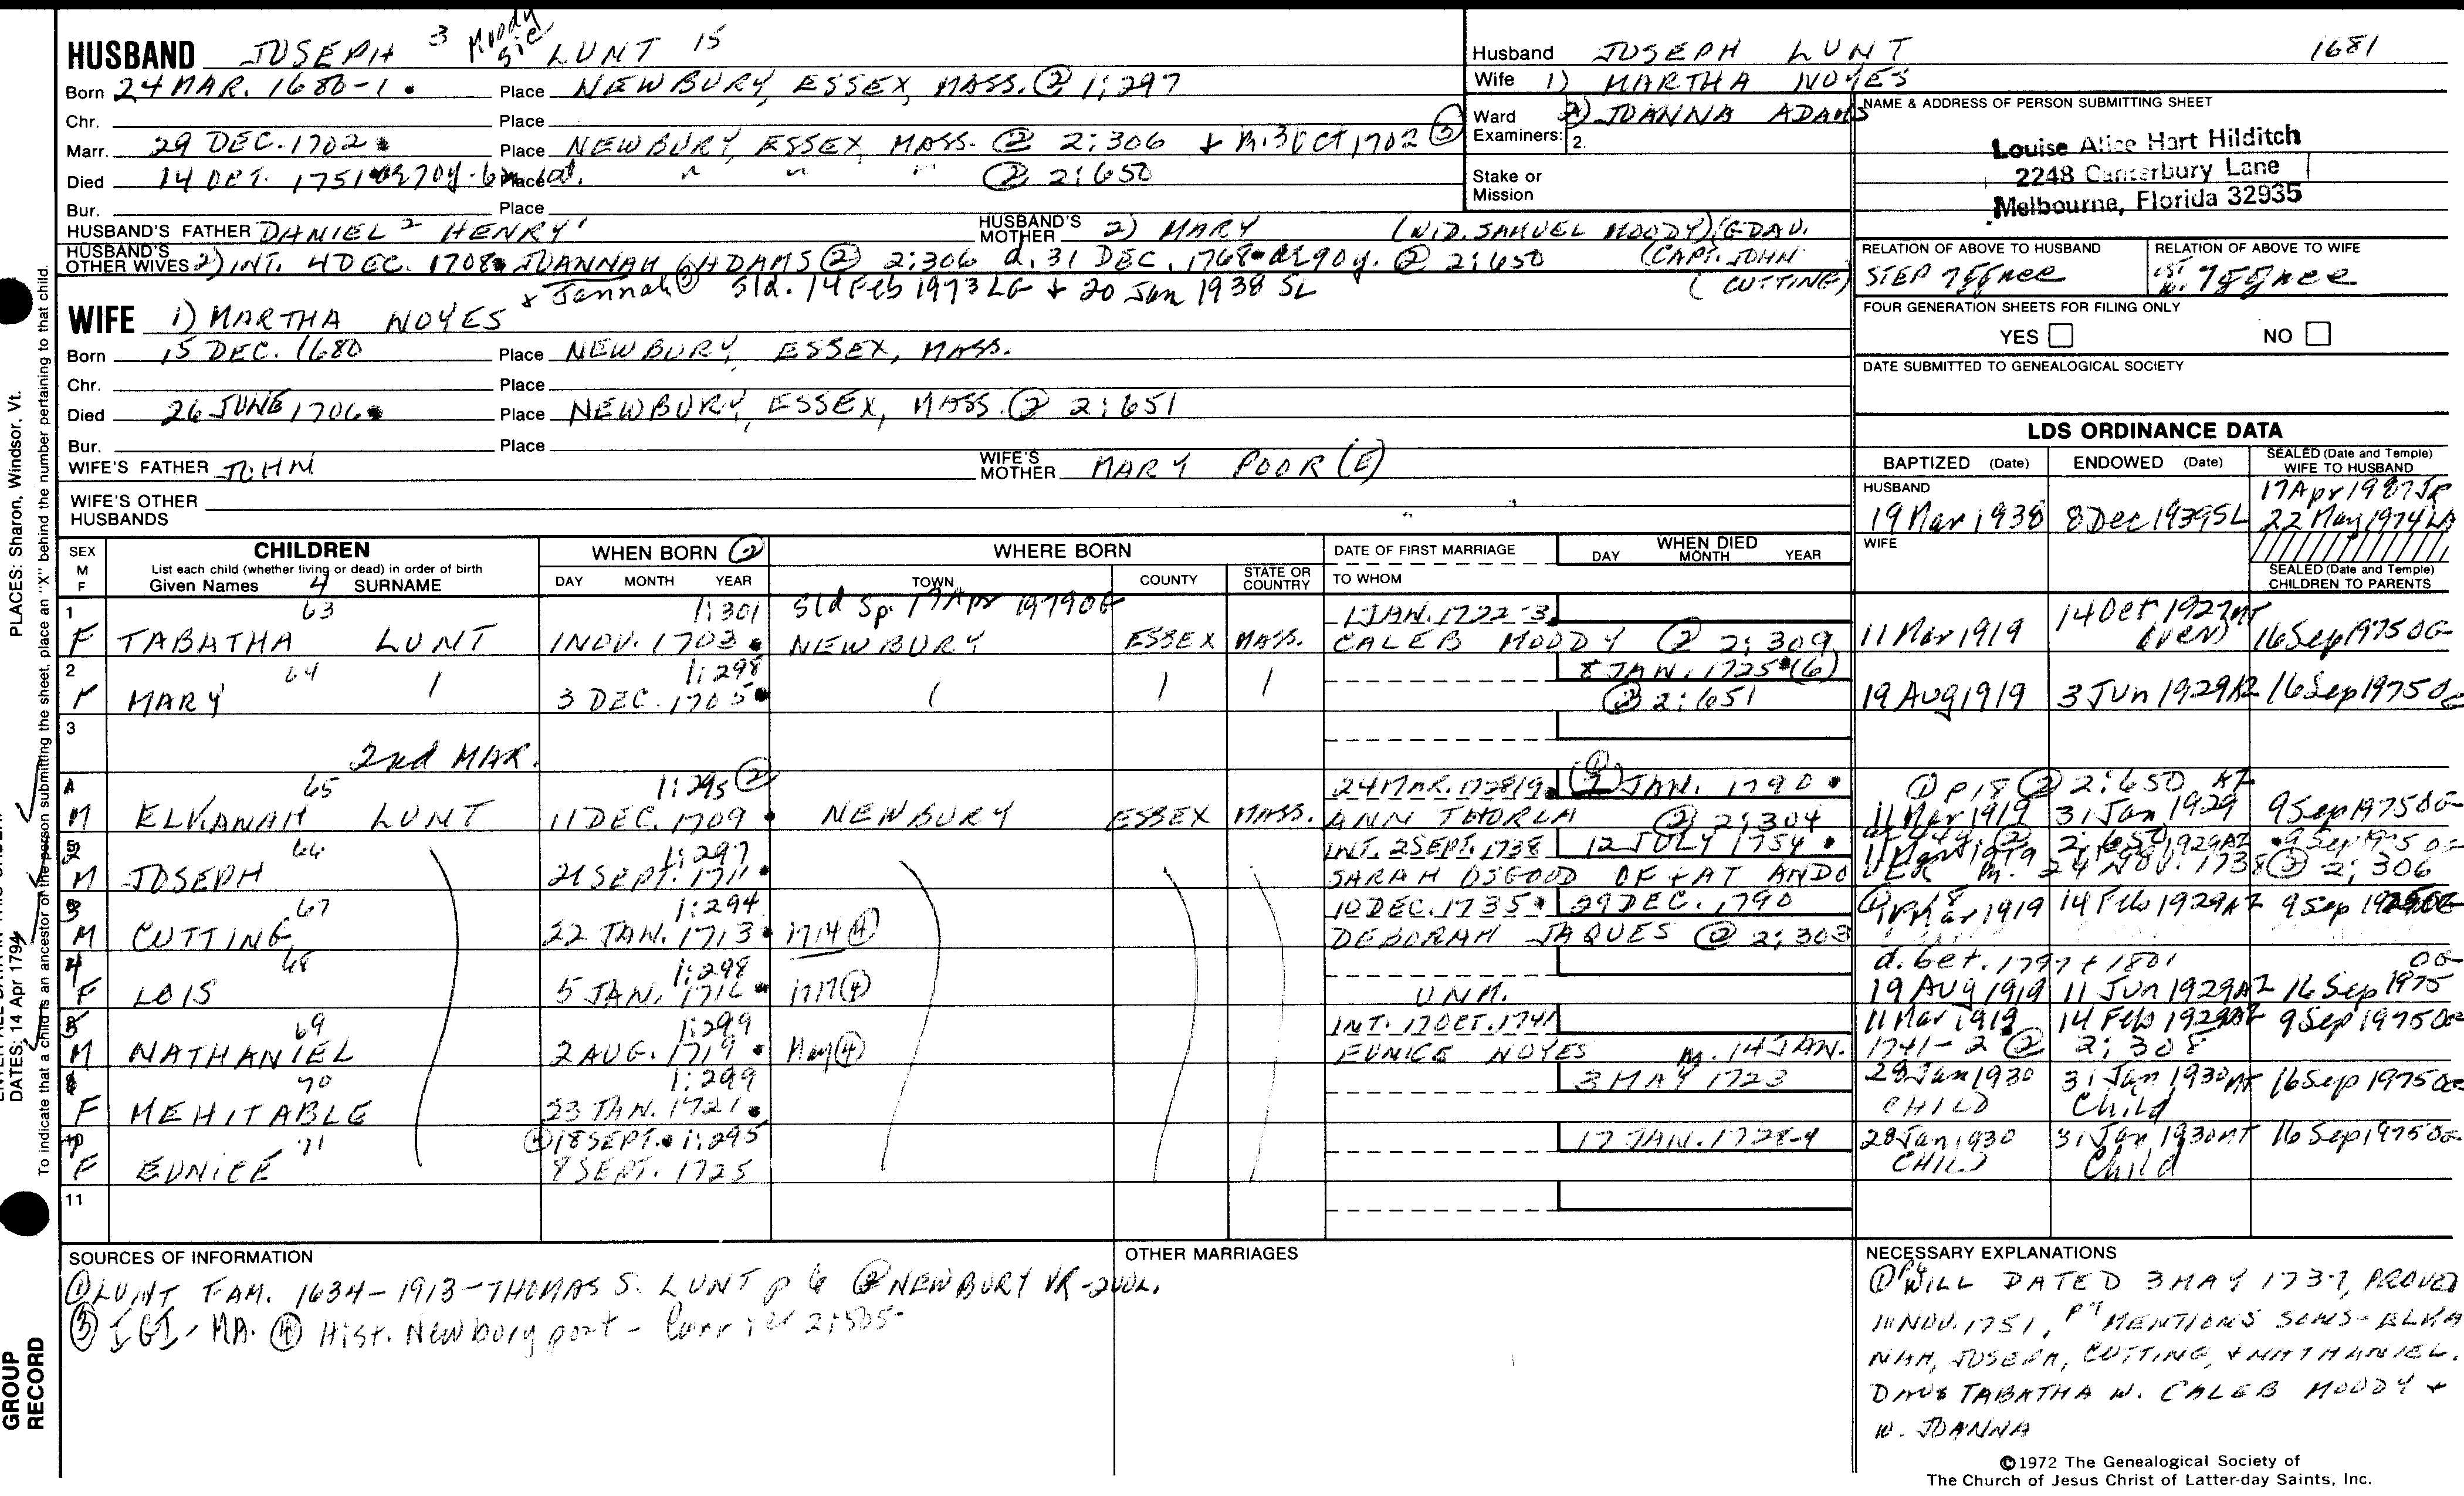 HUSBAND JOSEPH 3 Moody sic LUNT 15
Born 24 MAR. 1680-1. Place NEWBURY, ESSEX, MASS. ② 1:297
Chr. Place
Marr. 29 DEC. 1702 Place NEWBURY, ESSEX, MASS. ② 2:306 + m. 30 Oct 1702 ③
Died 14 OCT. 1751 Place " " " ② 2:650
Bur. Place
HUSBAND'S FATHER DANIEL 2 HENRY 1 HUSBAND'S MOTHER 2) MARY (WID. SAMUEL MOODY) (G-DAU.
HUSBAND'S OTHER WIVES 2) INT. 4 DEC. 1708 JOANNAH ADAMS ② 2:306 d. 31 DEC. 1768 ae 90y. ② 2:650 (CAPT. JOHN
+ Jannah ③ Sld. 14 Feb 1973 LG + 20 Jan 1938 SL (CUTTING)
WIFE 1) MARTHA NOYES
Born 15 DEC. 1680 Place NEWBURY, ESSEX, MASS.
Chr. Place
Died 26 JUNE 1706 Place NEWBURY, ESSEX, MASS. ② 2:651
Bur. Place
WIFE'S FATHER JOHN WIFE'S MOTHER MARY POOR (E)
WIFE'S OTHER HUSBANDS
Husband JOSEPH LUNT 1681
Wife 1) MARTHA NOYES
Ward 2) JOANNA ADAMS
Examiners: 2.
Stake or Mission
NAME & ADDRESS OF PERSON SUBMITTING SHEET
Louise Alice Hart Hilditch
2248 Canterbury Lane
Melbourne, Florida 32935
RELATION OF ABOVE TO HUSBAND RELATION OF ABOVE TO WIFE
STEP
FOUR GENERATION SHEETS FOR FILING ONLY
YES NO
DATE SUBMITTED TO GENEALOGICAL SOCIETY
LDS ORDINANCE DATA
BAPTIZED (Date) ENDOWED (Date) SEALED (Date and Temple) WIFE TO HUSBAND
HUSBAND 19 Mar 1938 8 Dec 1939 SL 22 May 1974
WIFE
SEALED (Date and Temple) CHILDREN TO PARENTS
SEX M F CHILDREN WHEN BORN ② WHERE BORN DATE OF FIRST MARRIAGE WHEN DIED
List each child (whether living or dead) in order of birth
Given Names 4 SURNAME DAY MONTH YEAR TOWN COUNTY STATE OR COUNTRY TO WHOM DAY MONTH YEAR
1 63 1:301 Sld Sp. 17 Apr 1979 OG 1 JAN. 1722-3 14 Oct 1927
F TABATHA LUNT 1 NOV. 1703 NEWBURY ESSEX MASS. CALEB MOODY ② 2:309 11 Mar 1919 16 Sep 1975 OG
2 64 1:298 8 JAN. 1725 (6)
F MARY 3 DEC. 1705 ② 2:651 19 Aug 1919 3 Jun 1929 AZ 16 Sep 1975 OG
3
2nd MAR.
65 1:295 ② 24 MAR. 1728/9 JAN. 1790 ① p 18 ② 2:650 AZ
M ELKANAH LUNT 11 DEC. 1709 NEWBURY ESSEX MASS. ANN THORLA ② 2:304 11 Mar 1919 31 Jan 1929 9 Sep 1975 OG
66 1:297 INT. 2 SEPT. 1738 12 JULY 1754
M JOSEPH 21 SEPT. 1711 SARAH OSGOOD OF + AT ANDOVER m. 24 NOV. 1738 ② 2:306
67 1:294 10 DEC. 1735 29 DEC. 1790
M CUTTING 22 JAN. 1713 1714 ④ DEBORAH JAQUES ② 2:303 14 Feb 1929 AZ 9 Sep
68 1:298 d. bet. 1797 + 1801 OG
F LOIS 5 JAN. 1716 1717 ④ UNM. 19 Aug 1919 11 Jun 1929 AZ 16 Sep 1975
69 1:299 INT. 17 OCT. 1741 11 Mar 1919 14 Feb 1929 9 Sep 1975 OG
M NATHANIEL 2 AUG. 1719 May ④ EUNICE NOYES m. 14 JAN. 1741-2 ② 2:308
70 1:299 3 MAY 1723 28 Jan 1930 31 Jan 1930 AZ 16 Sep 1975 OG
F MEHITABLE 23 JAN. 1721 CHILD Child
71 ④ 18 SEPT. 1:295 17 JAN. 1728-9 28 Jan 1930 31 Jan 1930 16 Sep 1975 OG
F EUNICE 8 SEPT. 1725 CHILD Child
11
SOURCES OF INFORMATION
① LUNT FAM. 1634-1913 - THOMAS S. LUNT p 6 ② NEWBURY VR - 2 VOL.
③ IGI - MA. ④ Hist. Newburyport - Currier 2:505
OTHER MARRIAGES
NECESSARY EXPLANATIONS
① WILL DATED 3 MAY 1737, PROVED
10 NOV. 1751, MENTIONS SONS - ELKA
NAH, JOSEPH, CUTTING, + NATHANIEL.
DAUS TABATHA W. CALEB MOODY +
W. JOANNA
©1972 The Genealogical Society of
The Church of Jesus Christ of Latter-day Saints, Inc.
PLACES: Sharon, Windsor, Vt.
DATES: 14 Apr 1794
To indicate that a child is an ancestor of the person submitting the sheet, place an "X" behind the number pertaining to that child.
GROUP
RECORD